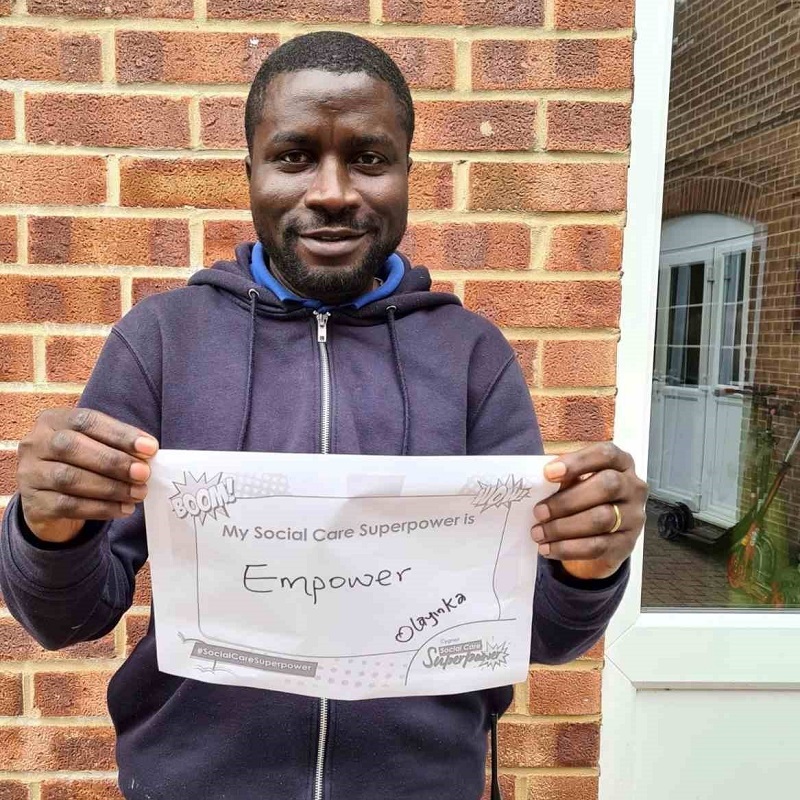 BOOM!
WOW!
My Social Care Superpower is
Empower
Olayinka
#SocialCareSuperpower
Cygnet
Social Care
Superpower